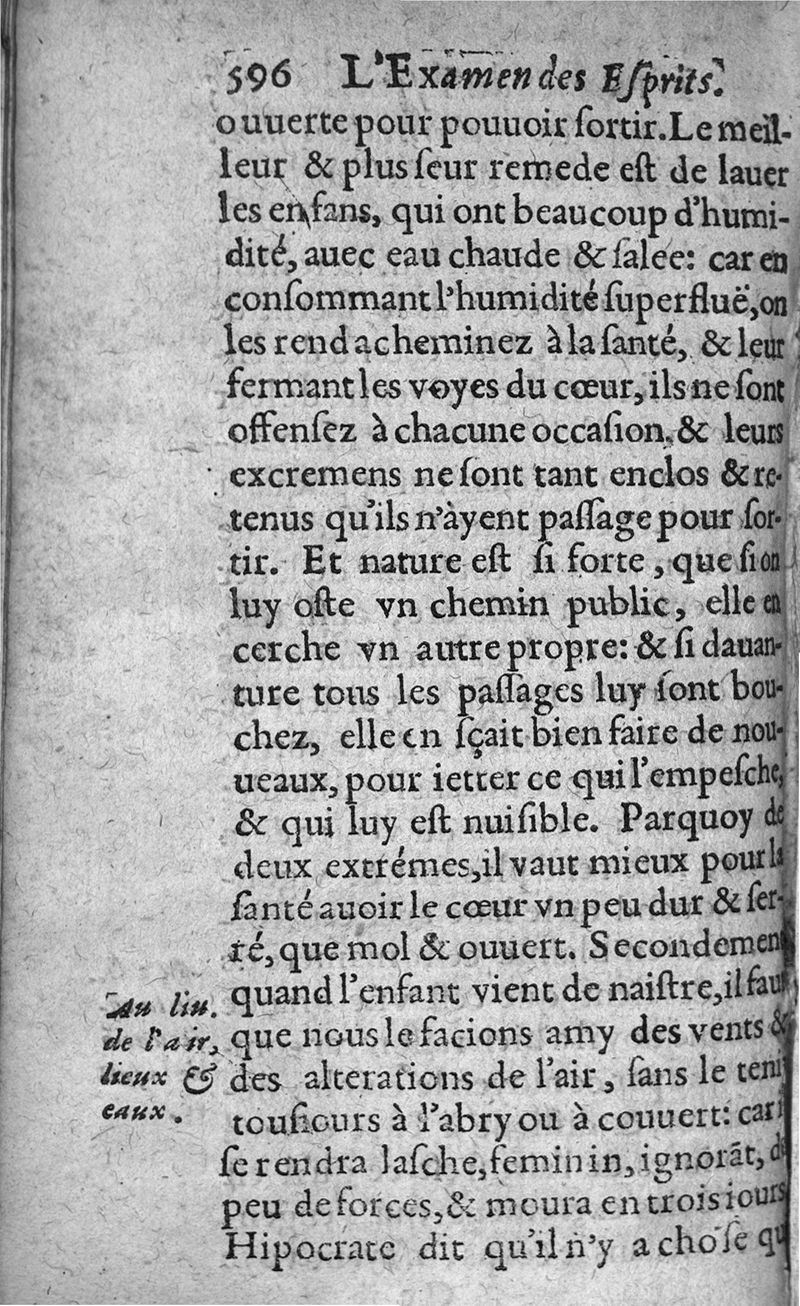 596 L'Examen des Eſprits.
ouuerte pour pouuoir ſortir. Le meil-
leur & plus ſeur remede eſt de lauer
les enfans, qui ont beaucoup d'humi-
dité, auec eau chaude & ſalee: car en
conſommant l'humidité ſuperfluë, on
les rend acheminez à la ſanté, & leur
fermant les voyes du cœur, ils ne ſont
offenſez à chacune occaſion, & leurs
excremens ne ſont tant enclos & re-
tenus qu'ils n'àyent paſſage pour ſor-
tir. Et nature eſt ſi forte, que ſi on
luy oſte vn chemin public, elle en
cerche vn autre propre: & ſi dauan-
ture tous les paſſages luy ſont bou-
chez, elle en ſçait bien faire de nou-
ueaux, pour ietter ce qui l'empeſche,
& qui luy eſt nuiſible. Parquoy de
deux extrémes, il vaut mieux pour la
ſanté auoir le cœur vn peu dur & ſer-
ré, que mol & ouuert. Secondement
quand l'enfant vient de naiſtre, il faut
que nous le facions amy des vents &
des alterations de l'air, ſans le teni
touſiours à l'abry ou à couuert: car i
ſe rendra laſche, feminin, ignorãt, de
peu de forces, & moura en trois iours
Hipocrate dit qu'il n'y a choſe qu
Au liu.
de l'air,
lieux &
eaux.